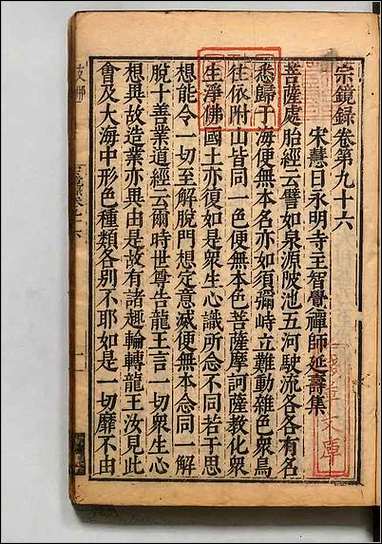 宗鏡録卷第九十六
宋慧日永明寺主智覺禪師延壽集
菩薩處胎經云譬如泉源陂池五河駛流各各有名
悉歸于海便無本名亦如須彌峙立難動雜色衆鳥
往依附山皆同一色便無本色菩薩摩訶薩教化衆
生淨佛國土亦復如是衆生心識所念不同若干思
想能令一切至解脫門想定意滅便無本念同一解
脫十善業道經云爾時世尊告龍王言一切衆生心
想異故造業亦異由是故有諸趣輪轉龍王汝見此
會及大海中形色種類各別不耶如是一切靡不由